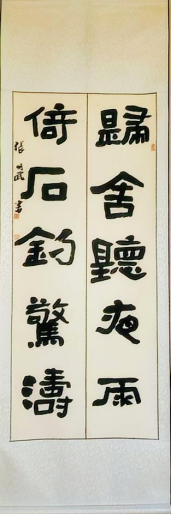 歸舍聽夜雨
倚石釣驚濤